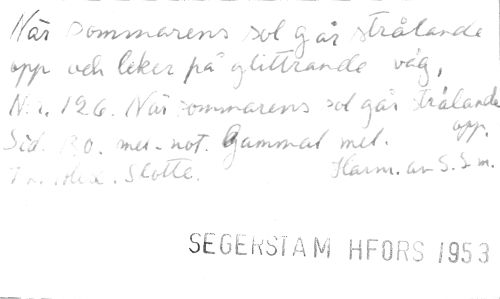 När sommarens sol går strålande
opp och leker på glittrande våg,
N:r. 126. När sommarens sol går strålande
opp.
Sid. mel-not. Gammal mel.
Slotte. Harm. av S. S-m.
SEGERSTAM HFORS 1953